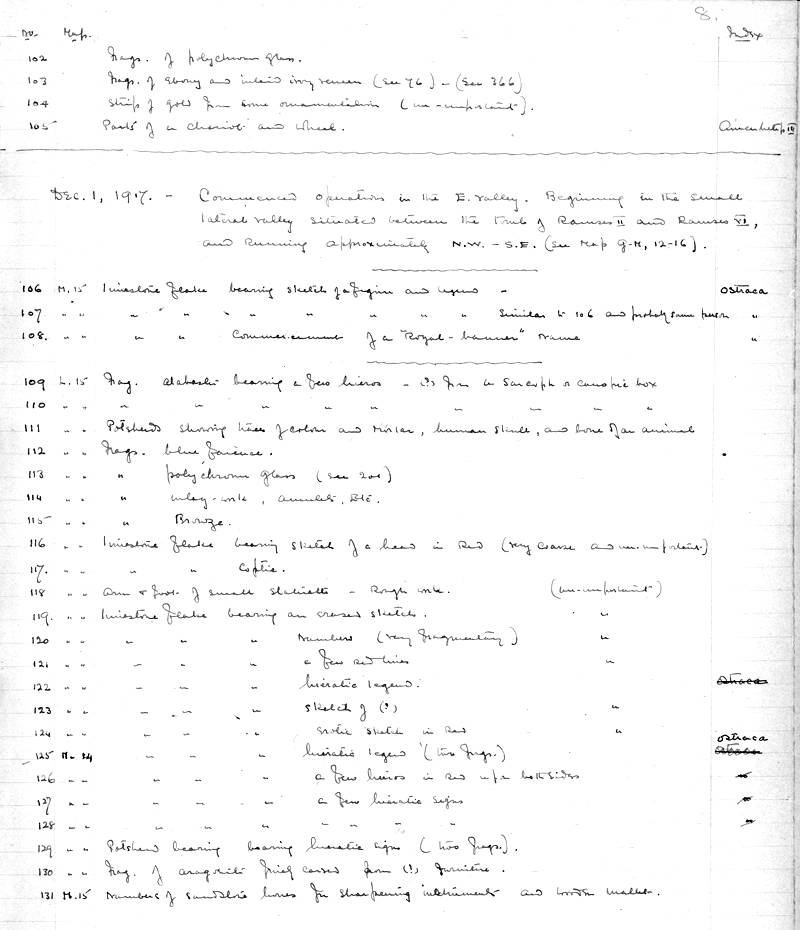 8.
No. Map. Index
102 Frags. of polychrome glass.
103 Frags. of Ebony and inlaid ivory veneer (See 76) - (See 366)
104 Strip of gold from some ornamentation (un-important).
105 Parts of a chariot and wheel. Amenhetep III
Dec. 1, 1917. - Commenced operations in the E. Valley. Beginning in the small
lateral valley situated between the tomb of Ramses II and Ramses VI,
and running approximately N.W. - S.E. (See Map G-H, 12-16).
106 H. 15 limestone flake bearing sketch of a figure and legend - Ostraca
107 " " " " " " " " " Similar to 106 and probably same person "
108. " " " " Commencement of a "Royal-banner" name "
109 L. 15 Frag. alabaster bearing a few hieros - (?) from a sarcoph or canopic box
110 " " " " " " " " " " "
111 " " Potsherds showing traces of colour and mortar, human skull, and bone of an animal
112 " " Frags. blue faience.
113 " " " polychrome glass (See 201)
114 " " " inlay-work, amulets, Etc.
115 " " " Bronze.
116 " " limestone flake bearing sketch of a head in red (very coarse and un-important)
117. " " " " Coptic.
118 " " Arm & foot of small statuette - Rough work. (un-important)
119. " " limestone flake bearing an erased sketch. "
120 " " " " " Numbers (very fragmentary) "
121 " " " " " a few red lines "
122 " " " " " hieratic legend. Ostraca
123 " " " " " sketch of (?) "
124 " " " " " erotic sketch in red "
Ostraca
125 " " " " hieratic legend (two frags.) Ostraca
126 " " " " " a few hieros in red upon both sides "
127 " " " " " a few hieratic signs "
128 " " " " " " " " "
129 " " Potsherd bearing bearing hieratic signs (two frags.).
130 " " Frag. of aragonite carved from (?) furniture.
131 H. 15 Numbers of sandstone hones for sharpening instruments and wooden mallet.